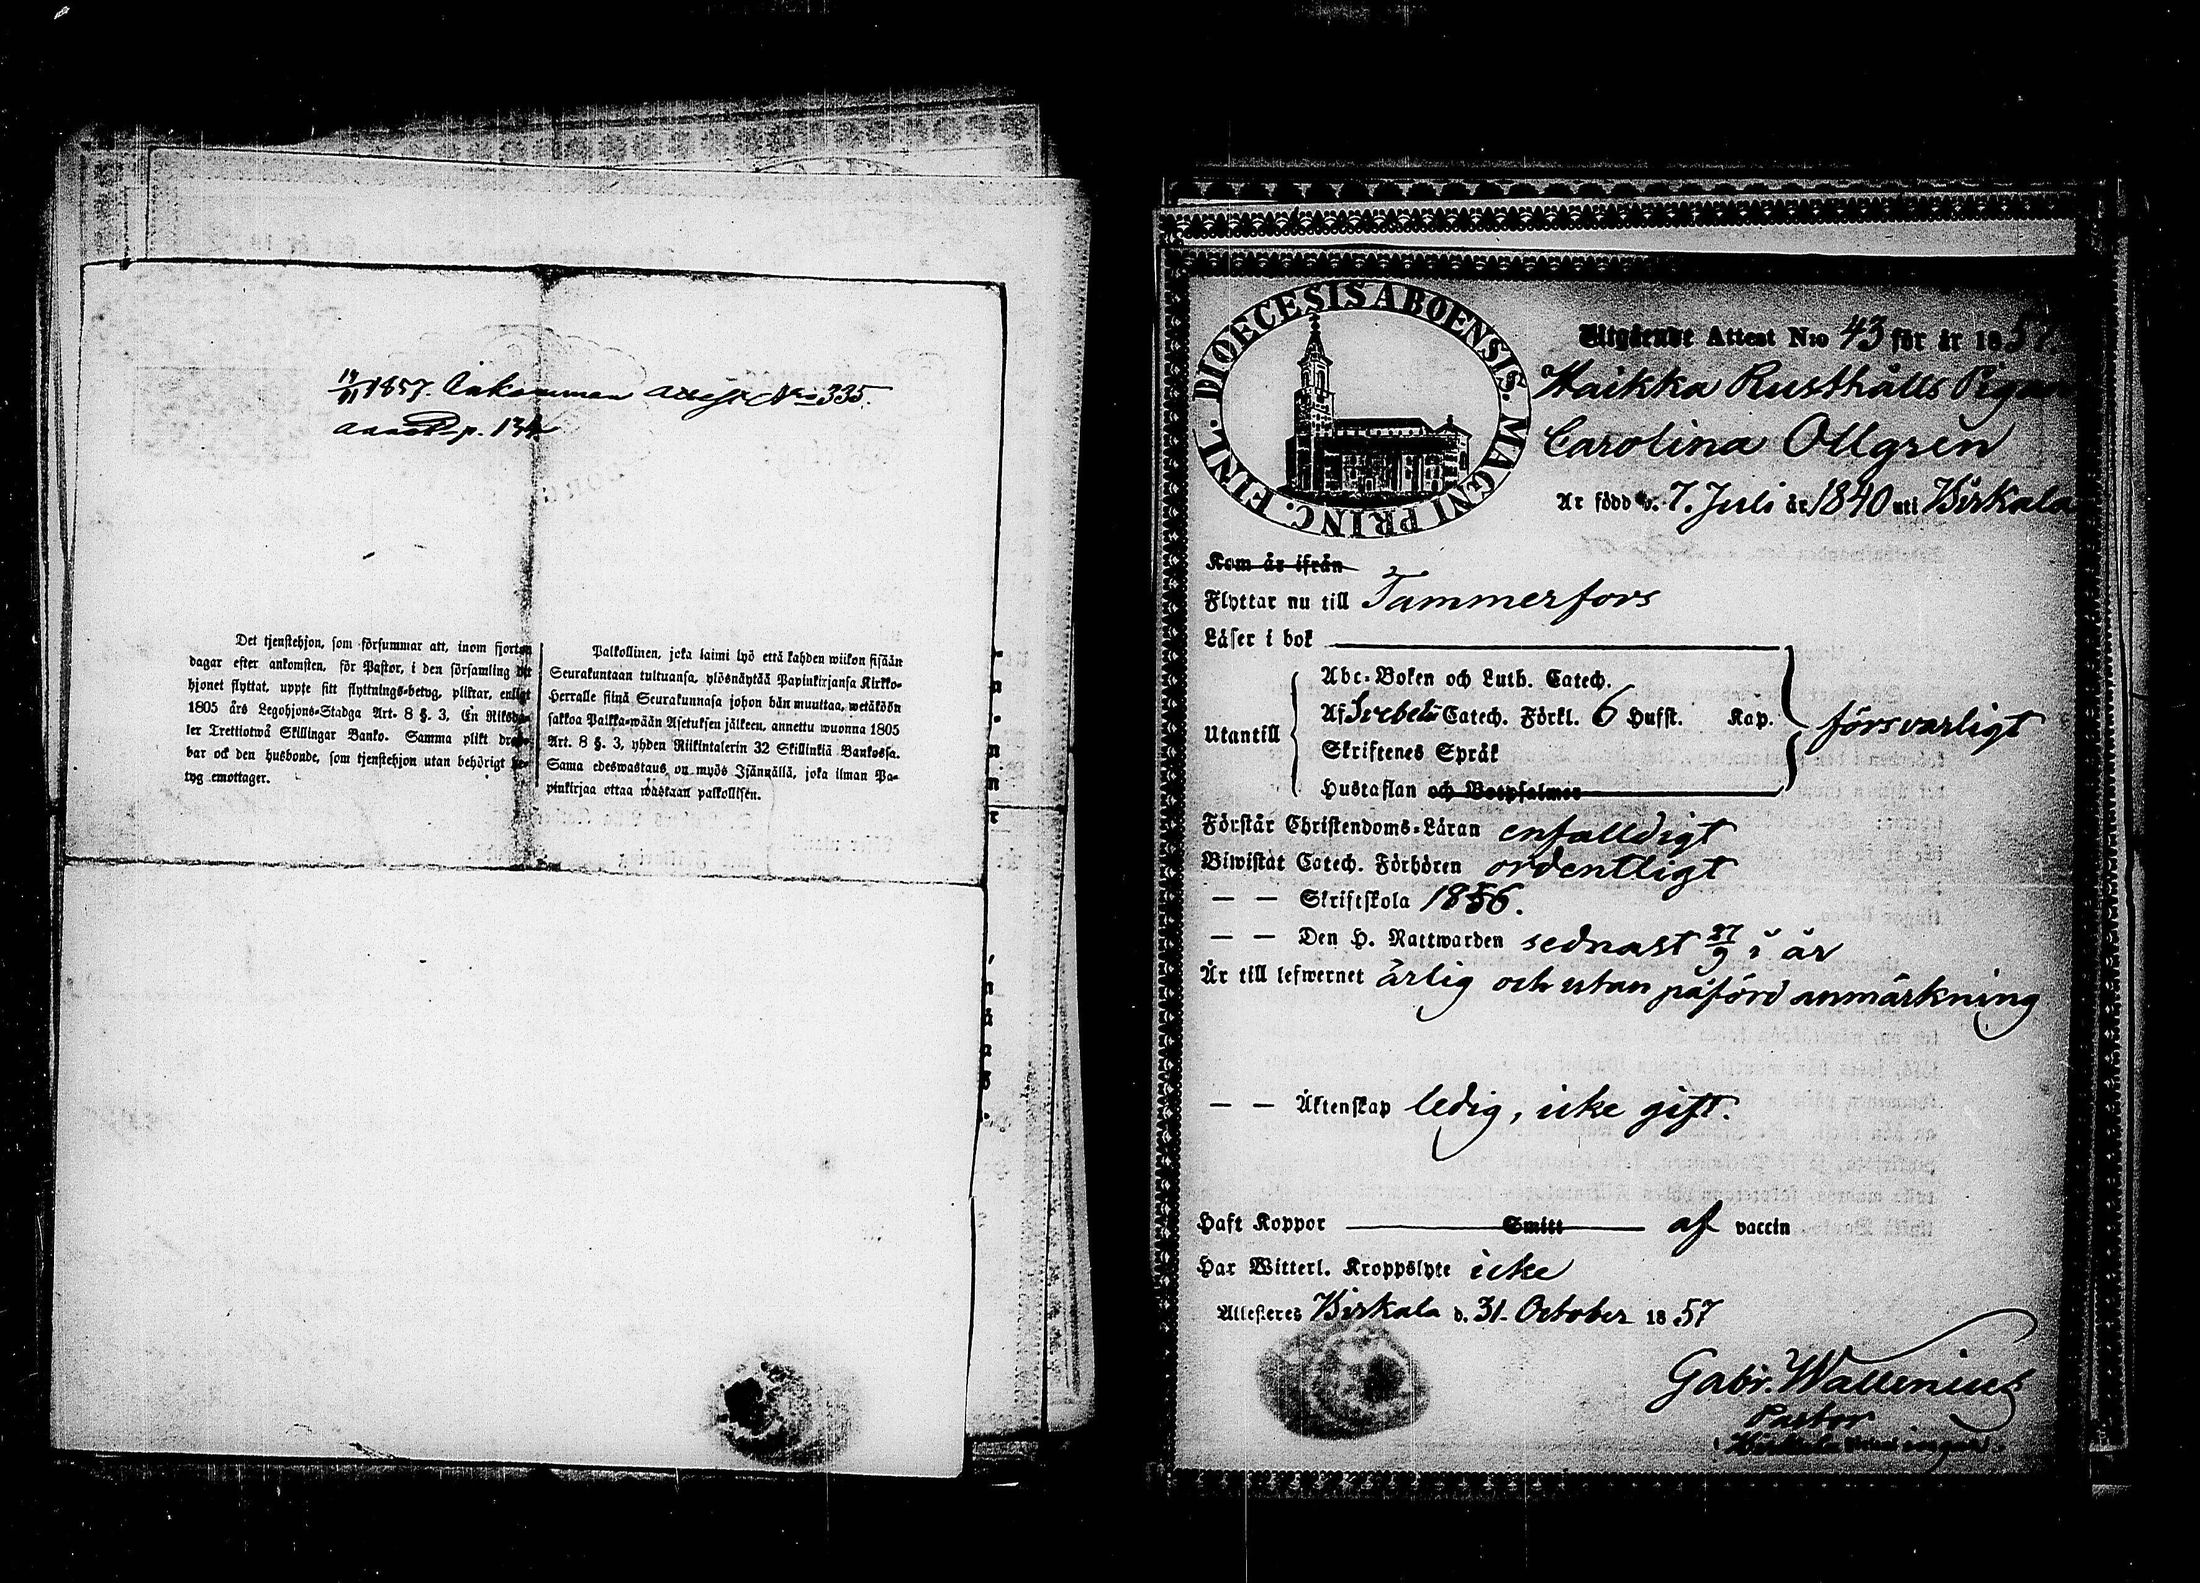 19/11 1857. Inkommen attest No 335.
annot. p. 134
Det tjenstehjon, som försummar att, inom fjorton
dagar efter ankomsten, för Pastor, i den församling dit
hjonet flyttat, uppte sitt flyttnings-betyg, pliktar, enligt
1805 års Legohjons-Stadga Art. 8 §. 3, En Riksda-
ler Trettiotwå Skillingar Banko. Samma plikt drab-
bar ock den husbonde, som tjenstehjon utan behörigt be-
tyg emottager.
Palkollinen, joka laimi lyö että kahden wiikon sisään
Seurakuntaan tultuansa, ylösnäytää Papinkirjansa Kirkko-
Herralle siinä Seurakunnasa johon hän muuttaa, wetäköön
sakkoa Palkka-wään Asetuksen jälkeen, annettu wuonna 1805
Art. 8 §. 3, yhden Riikintalerin 32 Skillinkiä Bankossa.
Sama edeswastaus on myös Isännällä, joka ilman Pa-
pinkirjaa ottaa wastaan palkollisen.
FINL. DIOECESIS ABOENSIS. MAGNI PRINC.
Utgående Attest N:o 43 för år 1857.
Haikka Rusthålls Pigan
Carolina Ollgrén
Är född d. 7. Juli år 1840 uti Birkala
Kom år ifrån
Flyttar nu till Tammerfors
Läser i bok
Utantill
Abc-Boken och Luth. Catech.
Af Svebelii Catech. Förkl. 6 Hufst. Kap.
Skriftenes Språk
Hustaflan och Botpsalmer
försvarligt
Förstår Christendoms-Läran enfalldigt
Biwistat Catech. Förhören ordentligt
— — Skriftskola 1856.
— — Den H. Nattwarden sednast 27/9 i år
Är till lefwernet ärlig och utan påförd anmärkning
— — Äktenskap ledig, icke gift.
Haft Koppor Smitt af vaccin
Har Witterl. Kroppslyte icke
Attesteres Birkala d. 31. October 1857
Gabr. Wallenius
Pastor